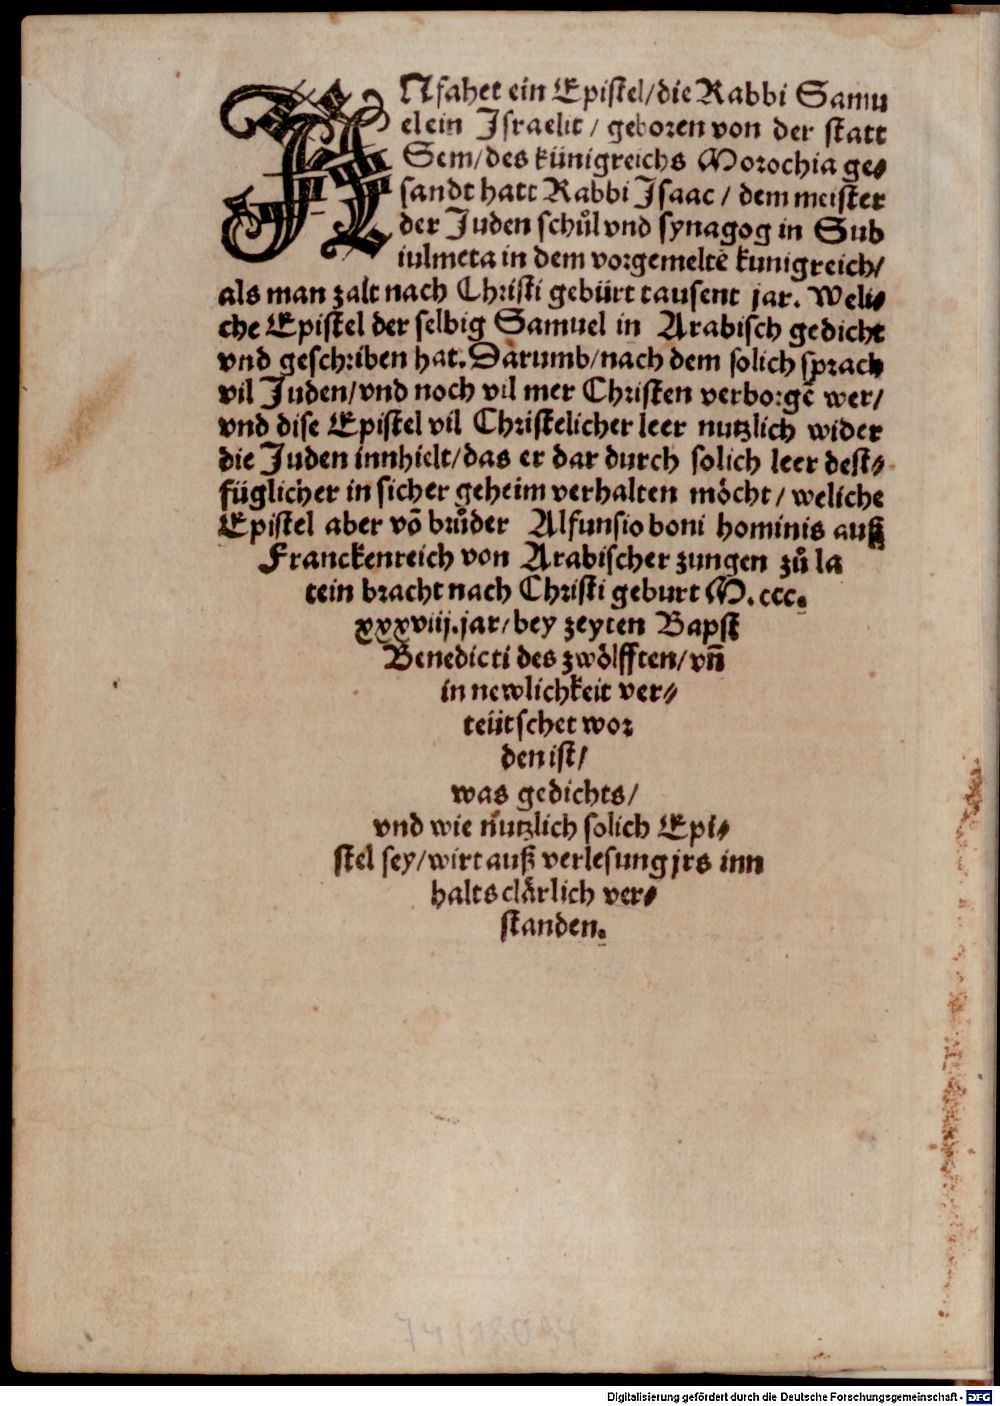 ANfahet ein Epistel/die Rabbi Samu
el ein Israelit / geboren von der statt
Sem/des künigreichs Morochia ge⸗
sandt hatt Rabbi Isaac / dem meister
der Juden schůl vnd synagog in Sub
iulmeta in dem vorgemeltē kunigreich/
als man zalt nach Christi gebürt tausent jar. Weli⸗
che Epistel der selbig Samuel in Arabisch gedicht
vnd geschriben hat. Darumb/nach dem solich sprach
vil Juden/vnd noch vil mer Christen verborgē wer/
vnd dise Epistel vil Christelicher leer nutzlich wider
die Juden innhielt/das er dar durch solich leer dest⸗
füglicher in sicher geheim verhalten möcht/ weliche
Epistel aber vō brůder Alfunsio boni hominis auß
Franckenreich von Arabischer zungen zů la
tein bracht nach Christi geburt M. ccc.
xxxviij. jar/bey zeyten Bapst
Benedicti des zwölfften/vñ
in newlichkeit ver⸗
teütschet wor
den ist/
was gedichts/
vnd wie nutzlich solich Epi⸗
stel sey/wirt auß verlesung jrs inn
halts clärlich ver⸗
standen.
74/18094
Digitalisierung gefördert durch die Deutsche Forschungsgemeinschaft - DFG